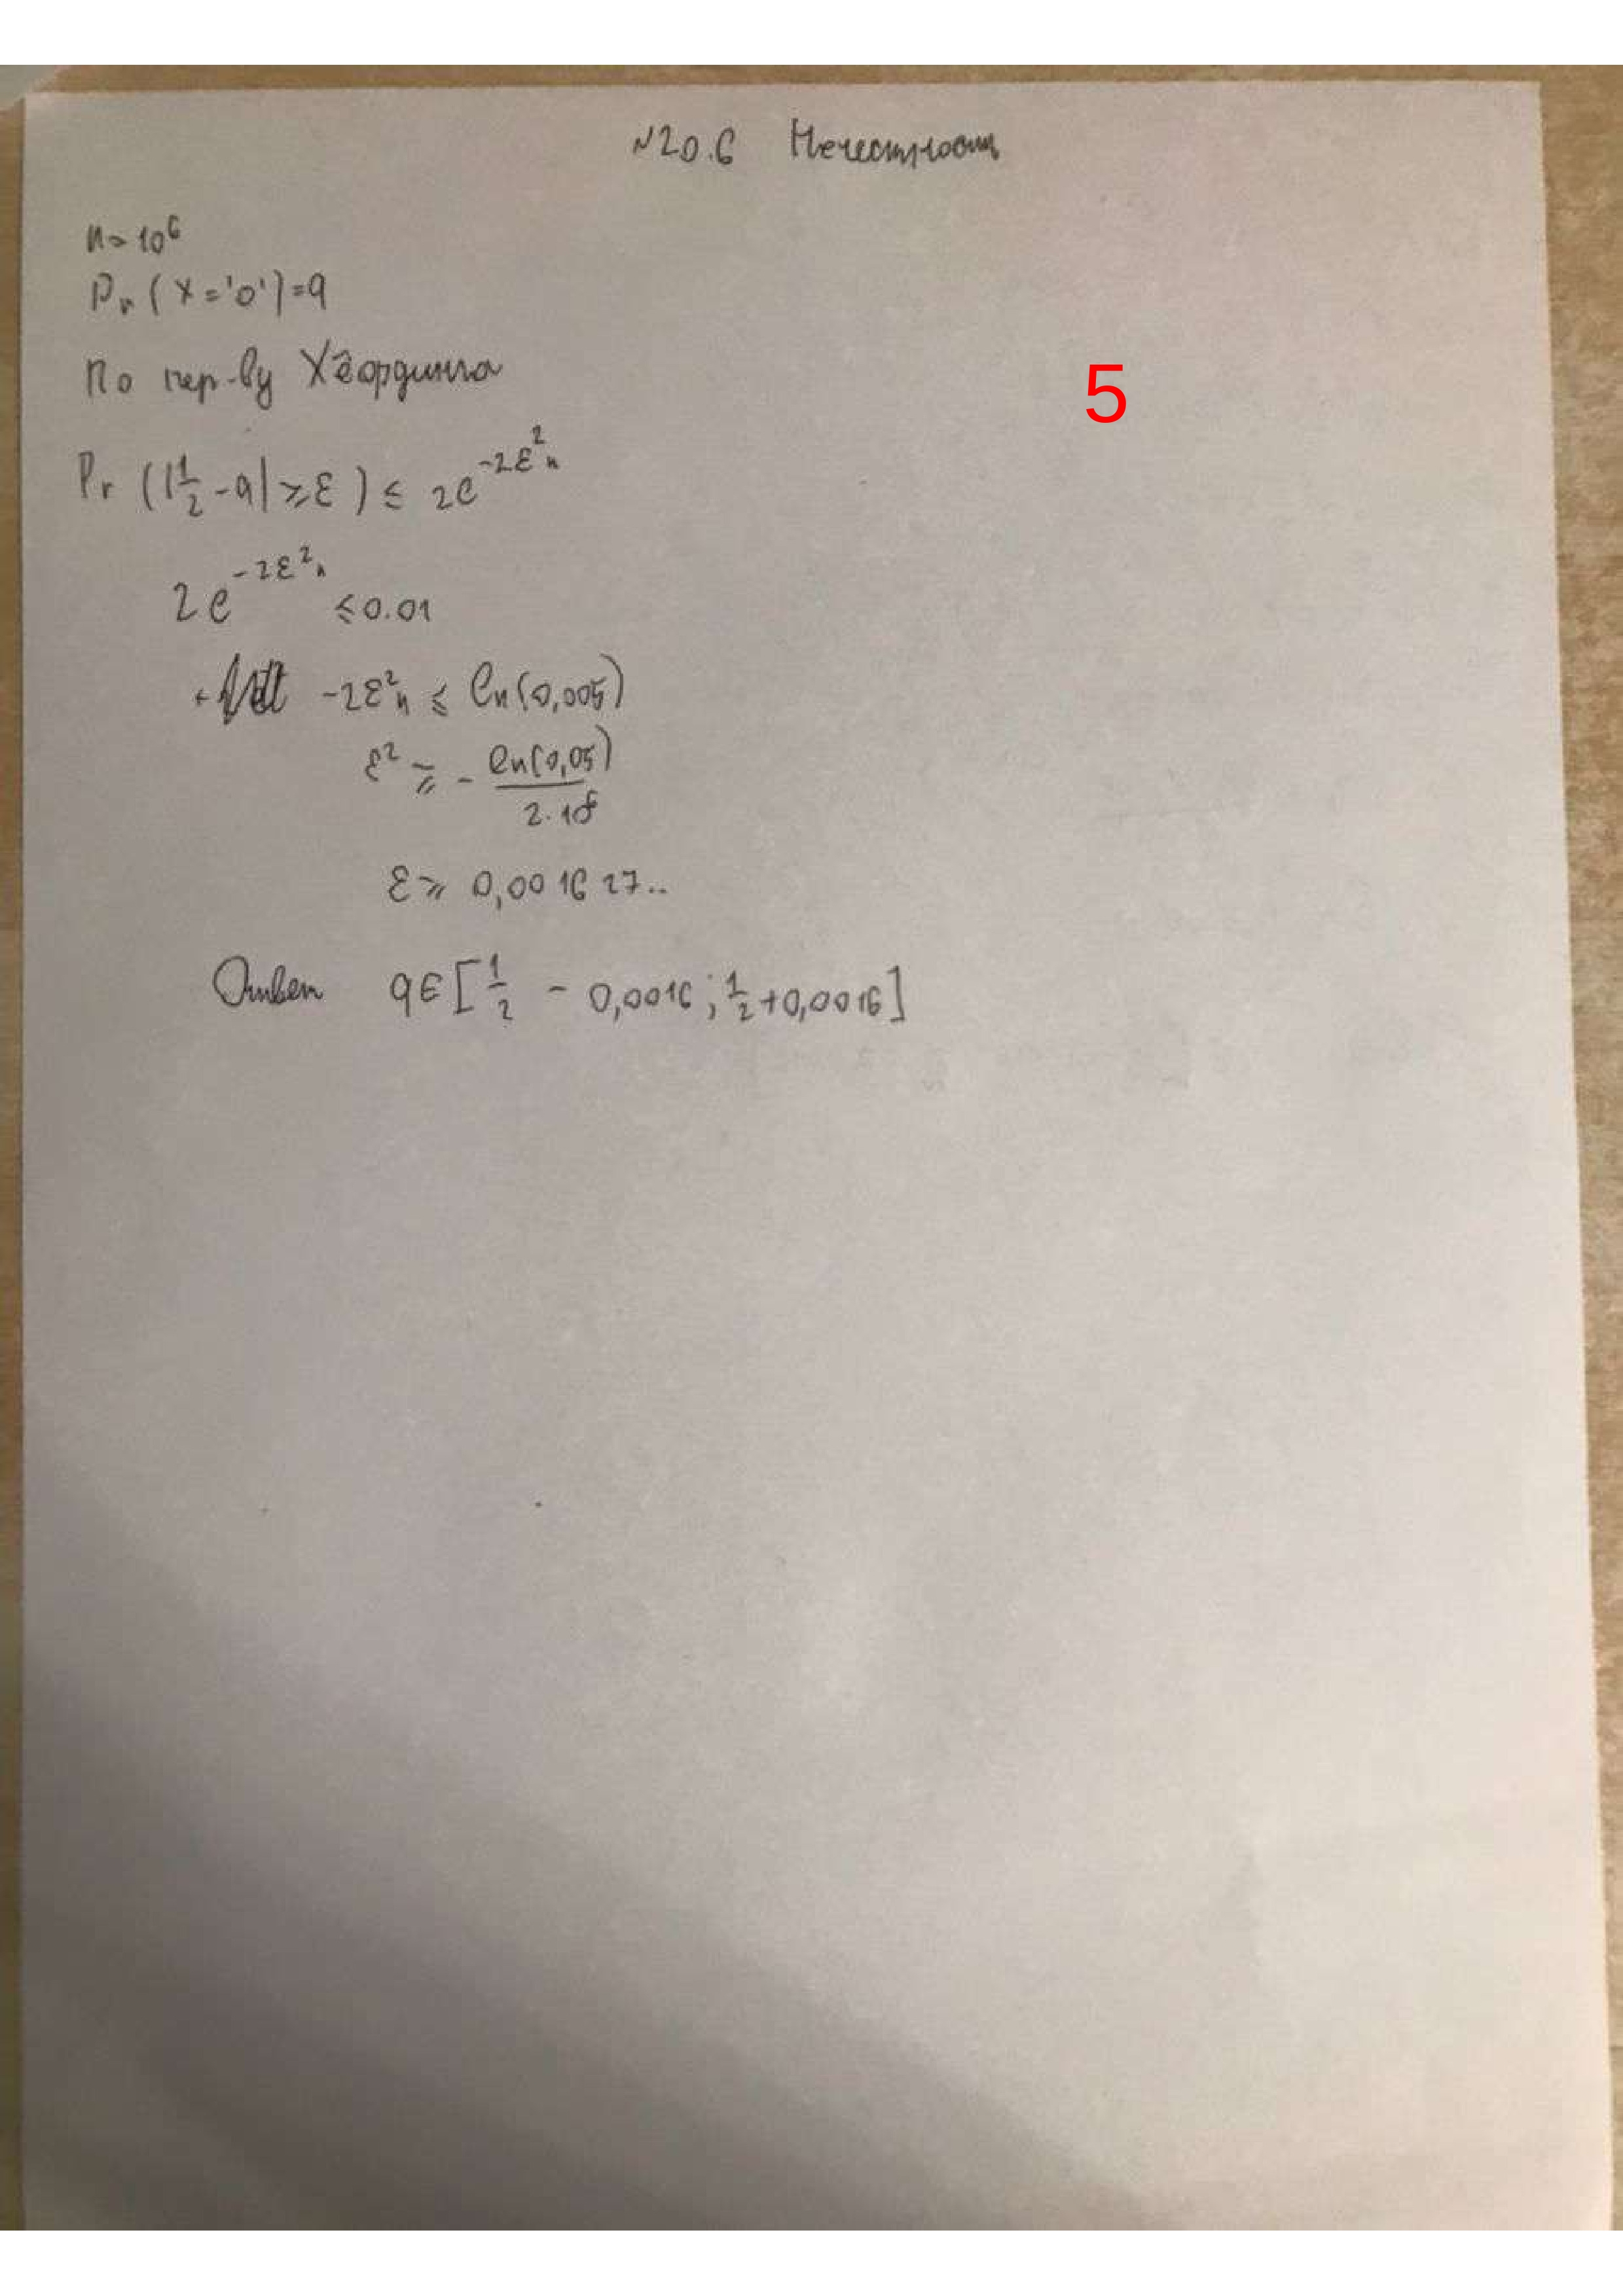 №20.6 Нечестности
n = 10^6
Pr (X = '0') = q
По нер-ву Хёфдинга
5
Pr (|1/2 - q| ⩾ ε) ≤ 2e^{-2ε^2 n}
2e^{-2ε^2 n} ≤ 0.01
-2ε^2 n ≤ ln(0,005)
ε^2 ⩾ - ln(0,05) / 2·10^6
ε ⩾ 0,001627..
Ответ q ∈ [1/2 - 0,0016 ; 1/2 + 0,0016]